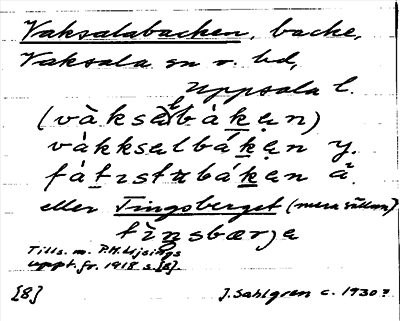 Vaksalabacken, backe,
Vaksala sn o. hd,
Uppsala l.
(vàksalbáken)
vákksalbáken y.
fátıstubáken ä.
eller Tingsberget (mera sällan)
tìnsbærje
Tills. m. P.M. Lijsings
uppt. fr. 1918 s. [8]
[8] J. Sahlgren c. 1930?